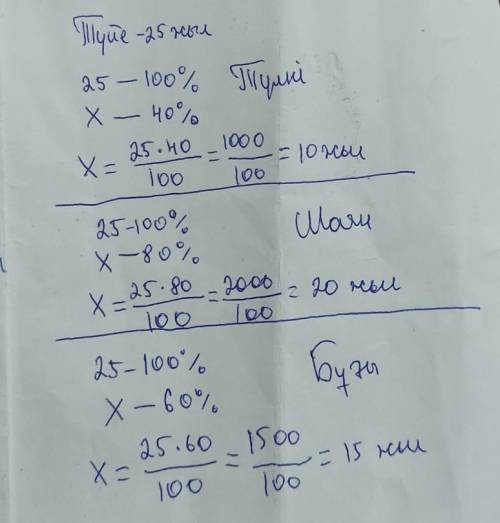 Түйе - 25 жыл
25 — 100% Түлкі
X — 40%
X = 25·40/100 = 1000/100 = 10 жыл
25 - 100% Шаян
X — 80%
X = 25·80/100 = 2000/100 = 20 жыл
25 - 100% Бұғы
X — 60%
X = 25·60/100 = 1500/100 = 15 жыл